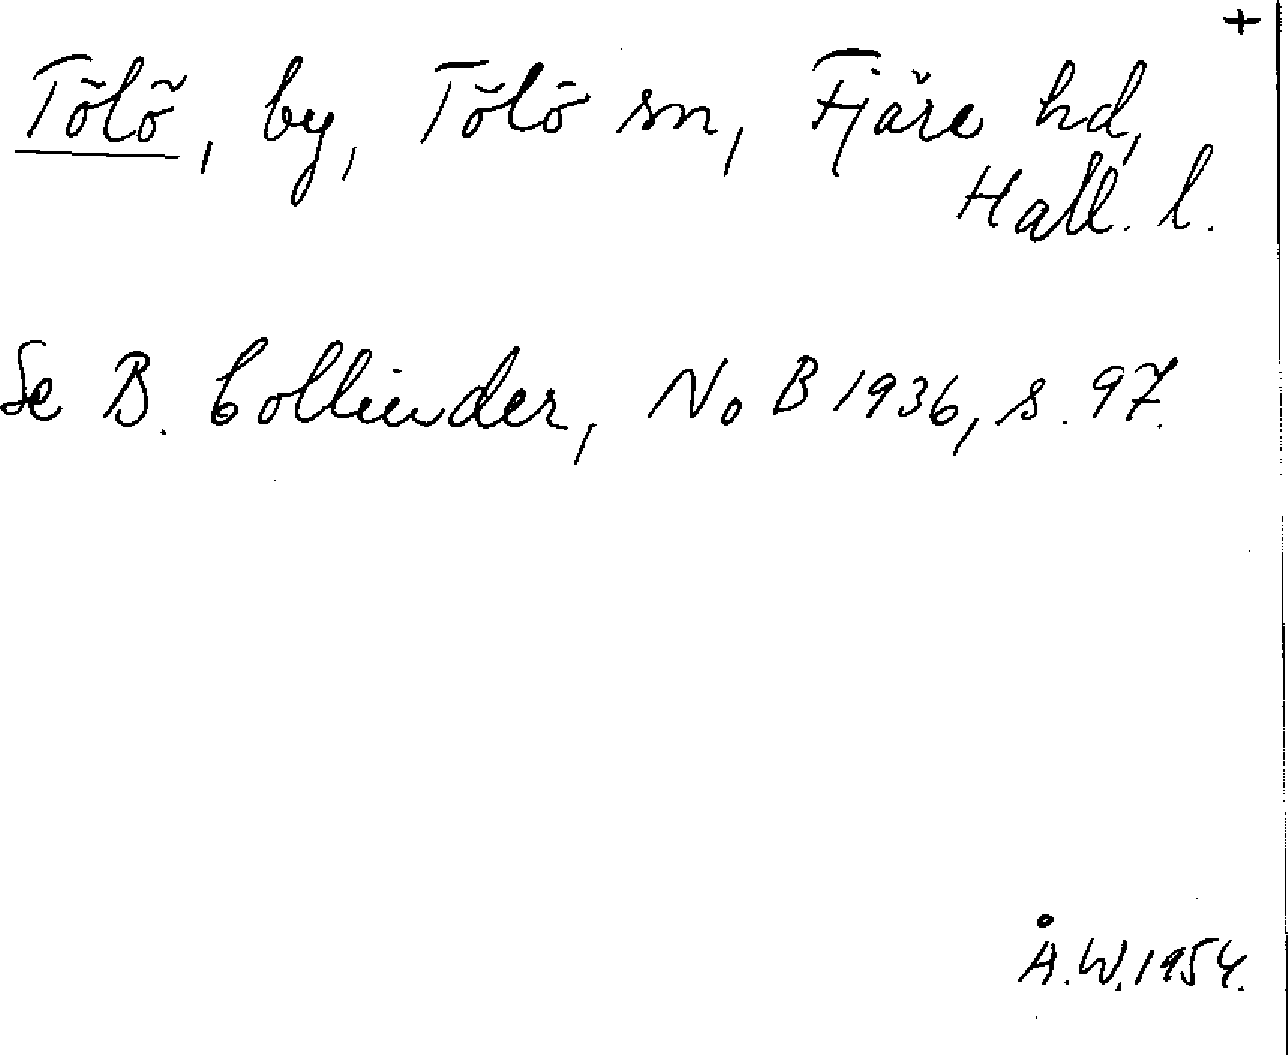 +
Tölö, by, Tölö sn, Fjäre hd,
Hall. l.
Se B. Collinder, NoB 1936, s. 97.
Å.W. 1954.